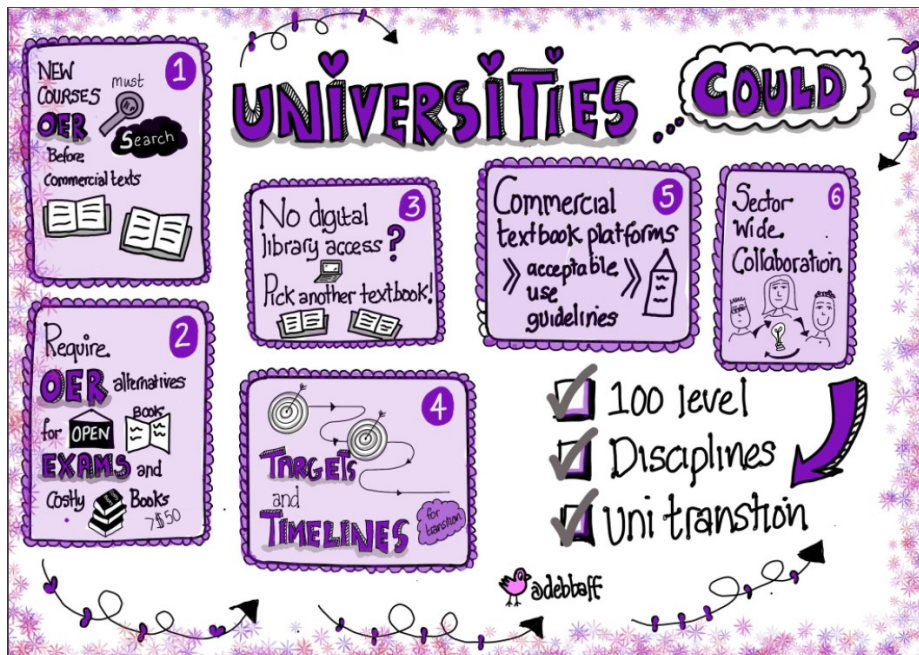 UNIVERSITIES COULD
1
NEW
COURSES
must
OER
Search
Before
Commercial texts
2
Require
OER alternatives
for OPEN BOOK
EXAMS and
Costly Books
>$50
3
No digital
library access?
Pick another textbook!
4
TARGETS
and
TIMELINES
for transition
5
Commercial
textbook platforms
acceptable
use
guidelines
6
Sector
Wide
Collaboration
100 level
Disciplines
Uni transtion
@debbaff